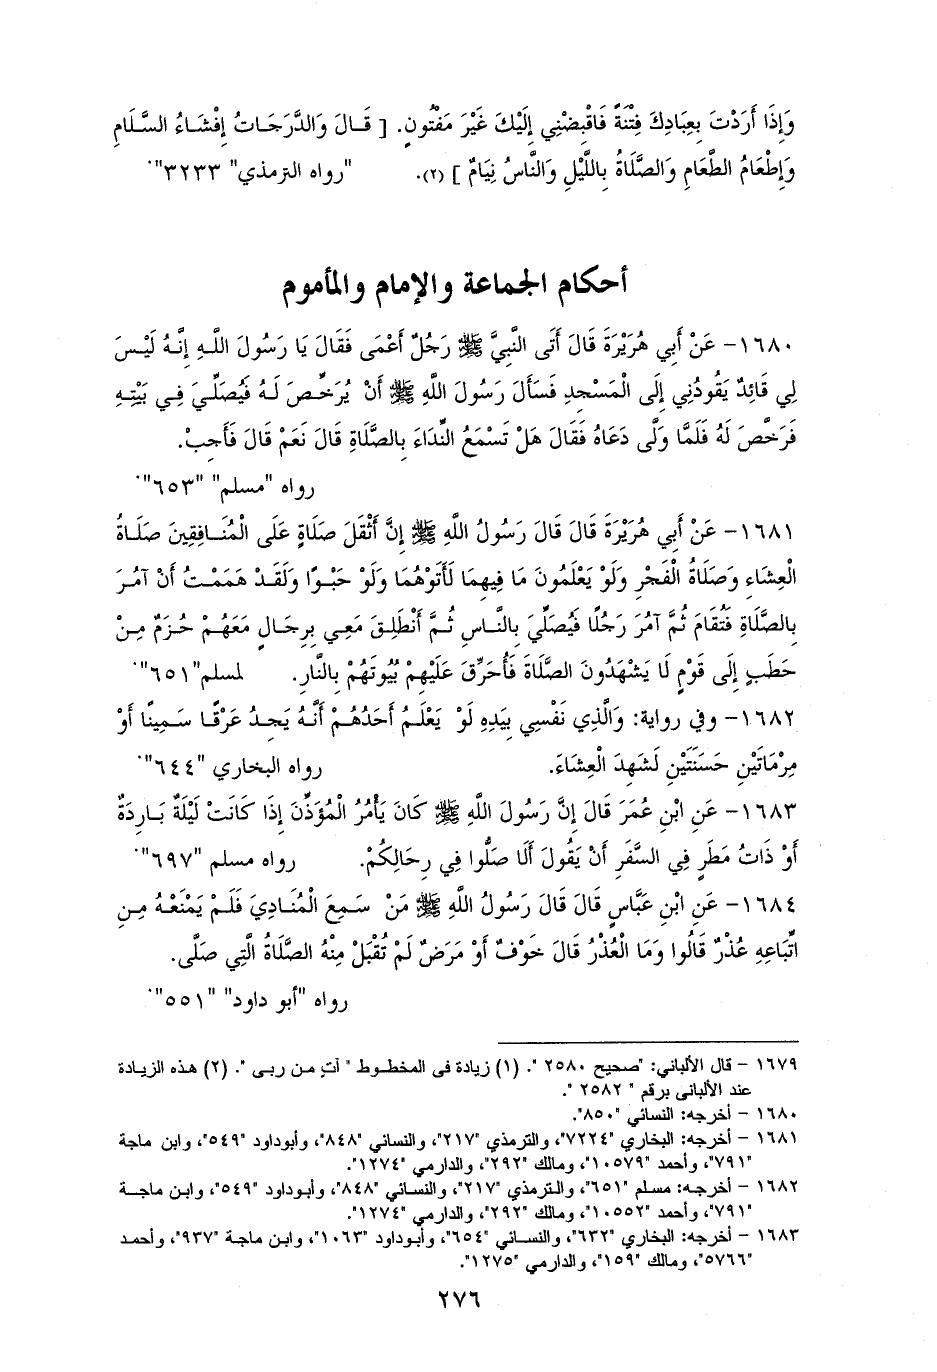 وَإِذَا أَرَدْتَ بِعِبَادِكَ فِتْنَةً فَاقْبِضْنِي إِلَيْكَ غَيْرَ مَفْتُونٍ. [ قَالَ وَالدَّرَجَاتُ إِفْشَاءُ السَّلَامِ
وَإِطْعَامُ الطَّعَامِ وَالصَّلَاةُ بِاللَّيْلِ وَالنَّاسُ نِيَامٌ ] (٢). "رواه الترمذي" ٣٢٣٣".
أحكام الجماعة والإمام والمأموم
١٦٨٠- عَنْ أَبِي هُرَيْرَةَ قَالَ أَتَى النَّبِيَّ ﷺ رَجُلٌ أَعْمَى فَقَالَ يَا رَسُولَ اللَّهِ إِنَّهُ لَيْسَ
لِي قَائِدٌ يَقُودُنِي إِلَى الْمَسْجِدِ فَسَأَلَ رَسُولَ اللَّهِ ﷺ أَنْ يُرَخِّصَ لَهُ فَيُصَلِّيَ فِي بَيْتِهِ
فَرَخَّصَ لَهُ فَلَمَّا وَلَّى دَعَاهُ فَقَالَ هَلْ تَسْمَعُ النِّدَاءَ بِالصَّلَاةِ قَالَ نَعَمْ قَالَ فَأَجِبْ.
رواه "مسلم" "٦٥٣".
١٦٨١- عَنْ أَبِي هُرَيْرَةَ قَالَ قَالَ رَسُولُ اللَّهِ ﷺ إِنَّ أَثْقَلَ صَلَاةٍ عَلَى الْمُنَافِقِينَ صَلَاةُ
الْعِشَاءِ وَصَلَاةُ الْفَجْرِ وَلَوْ يَعْلَمُونَ مَا فِيهِمَا لَأَتَوْهُمَا وَلَوْ حَبْوًا وَلَقَدْ هَمَمْتُ أَنْ آمُرَ
بِالصَّلَاةِ فَتُقَامَ ثُمَّ آمُرَ رَجُلًا فَيُصَلِّيَ بِالنَّاسِ ثُمَّ أَنْطَلِقَ مَعِي بِرِجَالٍ مَعَهُمْ حُزَمٌ مِنْ
حَطَبٍ إِلَى قَوْمٍ لَا يَشْهَدُونَ الصَّلَاةَ فَأُحَرِّقَ عَلَيْهِمْ بُيُوتَهُمْ بِالنَّارِ. لمسلم"٦٥١".
١٦٨٢- وفي رواية: وَالَّذِي نَفْسِي بِيَدِهِ لَوْ يَعْلَمُ أَحَدُهُمْ أَنَّهُ يَجِدُ عَرْقًا سَمِينًا أَوْ
مِرْمَاتَيْنِ حَسَنَتَيْنِ لَشَهِدَ الْعِشَاءَ. رواه البخاري "٦٤٤".
١٦٨٣- عَنِ ابْنِ عُمَرَ قَالَ إِنَّ رَسُولَ اللَّهِ ﷺ كَانَ يَأْمُرُ الْمُؤَذِّنَ إِذَا كَانَتْ لَيْلَةٌ بَارِدَةٌ
أَوْ ذَاتُ مَطَرٍ فِي السَّفَرِ أَنْ يَقُولَ أَلَا صَلُّوا فِي رِحَالِكُمْ. رواه مسلم "٦٩٧".
١٦٨٤- عَنِ ابْنِ عَبَّاسٍ قَالَ قَالَ رَسُولُ اللَّهِ ﷺ مَنْ سَمِعَ الْمُنَادِيَ فَلَمْ يَمْنَعْهُ مِنِ
اتِّبَاعِهِ عُذْرٌ قَالُوا وَمَا الْعُذْرُ قَالَ خَوْفٌ أَوْ مَرَضٌ لَمْ تُقْبَلْ مِنْهُ الصَّلَاةُ الَّتِي صَلَّى.
رواه "أبو داود" "٥٥١".
١٦٧٩ - قال الألباني: "صحيح ٢٥٨٠ ". (١) زيادة فى المخطوط " آتٍ من ربى ". (٢) هذه الزيادة
عند الألبانى برقم " ٢٥٨٢ ".
١٦٨٠ - أخرجه: النسائي "٨٥٠".
١٦٨١ - أخرجه: البخاري "٧٢٢٤"، والترمذي "٢١٧"، والنسائي "٨٤٨"، وأبوداود "٥٤٩"، وابن ماجة
"٧٩١"، وأحمد "١٠٥٧٩"، ومالك "٢٩٢"، والدارمي "١٢٧٤".
١٦٨٢ - أخرجه: مسلم "٦٥١"، والترمذي "٢١٧"، والنسائي "٨٤٨"، وأبوداود "٥٤٩"، وابن ماجة
"٧٩١"، وأحمد "١٠٥٥٢"، ومالك "٢٩٢"، والدارمي "١٢٧٤".
١٦٨٣ - أخرجه: البخاري "٦٣٢"، والنسائي "٦٥٤"، وأبوداود "١٠٦٣"، وابن ماجة "٩٣٧"، وأحمد
"٥٧٦٦"، ومالك "١٥٩"، والدارمي "١٢٧٥".
٢٧٦